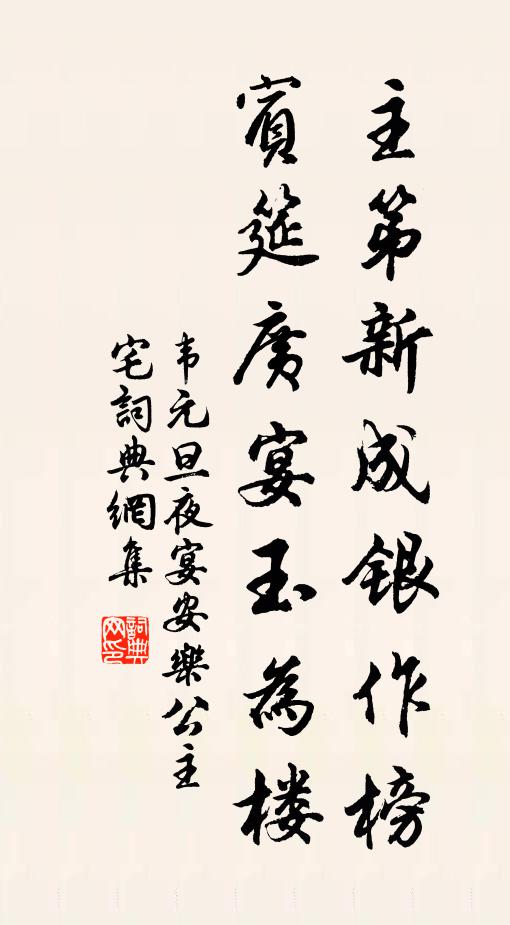 主第新成銀作榜
賓筵廣宴玉為楼
韦元旦夜宴安樂公主
宅詞典網集
詞典
网印